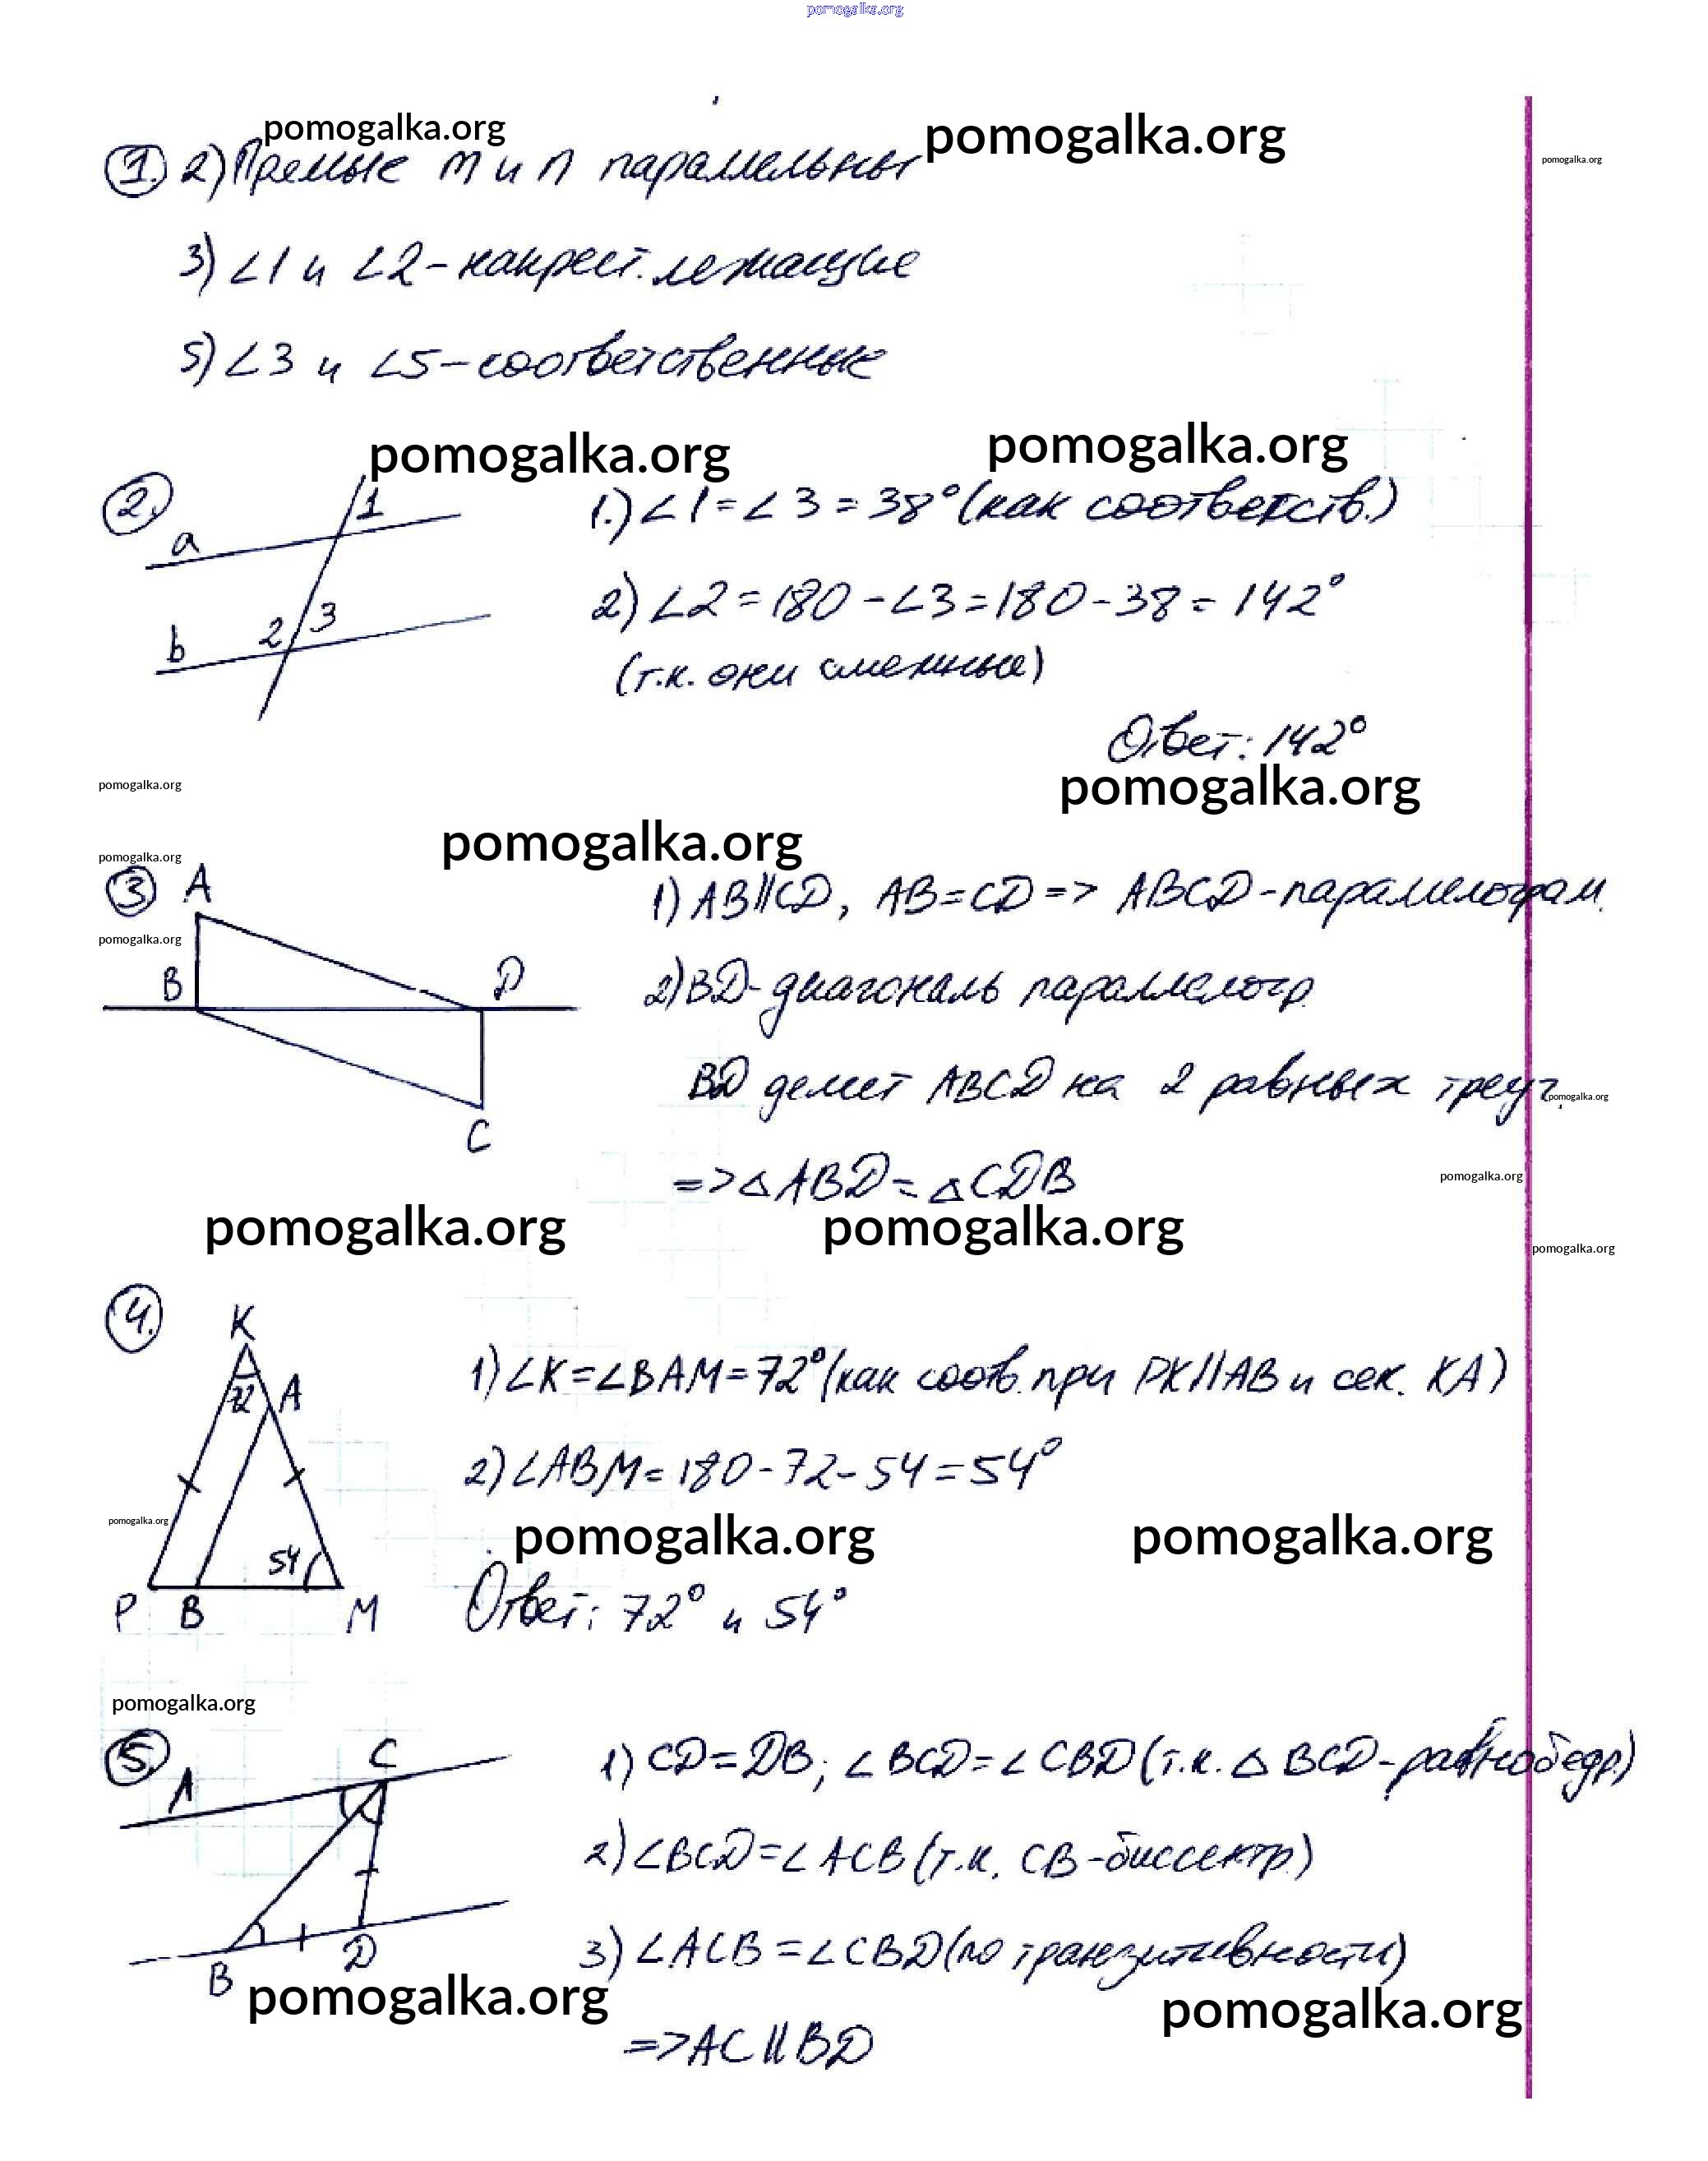 pomogalka.org
pomogalka.org pomogalka.org pomogalka.org
1. 2) Прямые m и n параллельны
3) ∠1 и ∠2 - накрест. лежащие
5) ∠3 и ∠5 - соответственные
pomogalka.org pomogalka.org
2. a 1 2 3 b
1.) ∠1 = ∠3 = 38° (как соответств.)
2) ∠2 = 180 - ∠3 = 180 - 38 = 142°
(т.к. они смежные)
Ответ: 142°
pomogalka.org pomogalka.org
pomogalka.org
pomogalka.org
3 A B D C
pomogalka.org
1) AB∥CD, AB=CD => ABCD - параллелограм.
2) BD - диагональ параллелогр.
BD делит ABCD на 2 равных треуг.
pomogalka.org
=> △ABD = △CDB
pomogalka.org
pomogalka.org pomogalka.org
pomogalka.org
4. K 72 A 54 P B M
1) ∠K = ∠BAM = 72° (как соотв. при PK∥AB и сек. KA)
2) ∠ABM = 180 - 72 - 54 = 54°
pomogalka.org pomogalka.org pomogalka.org
Ответ: 72° и 54°
pomogalka.org
5. A C B D
1) CD = DB; ∠BCD = ∠CBD (т.к. △BCD - равнобедр.)
2) ∠BCD = ∠ACB (т.к. CB - биссектр.)
3) ∠ACB = ∠CBD (по транзитивности)
pomogalka.org pomogalka.org
=> AC∥BD